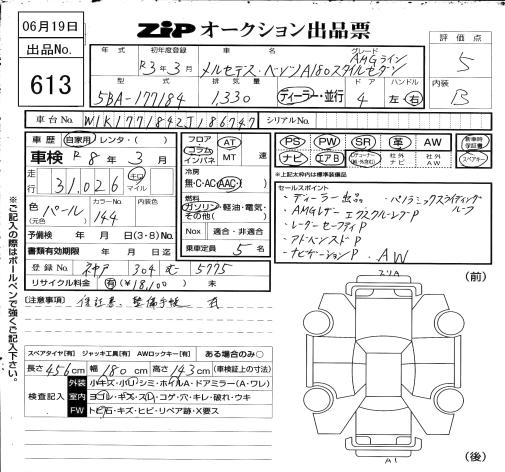 06月19日
出品No.
613
ZIP オークション出品票
評価点
5
内装
B
年式 初年度登録 車名 グレード
R3年3月 メルセデス・ベンツA180スタイルセダン AMGライン
型式 排気量 ドア ハンドル
5BA-177184 1,330 ディーラー・並行 4 左・右
車台No. W1K1771842J186747 シリアルNo.
車歴 自家用・レンタ・( )
車検 R8年3月
走行 31,026 キロ マイル
色(元色) パール カラーNo. 144
予備検 年 月 日(3・8)No.
書類有効期限 年 月 日迄
登録No. 神戸 304 む 5775
リサイクル料金 有(¥18,100) 未
フロア コラム インパネ AT MT 速
冷房 無・C・AC・AAC・( )
燃料 ガソリン・軽油・電気・その他( )
Nox 適合・非適合
乗車定員 5 名
PS PW SR 革 AW
ナビ エアB 社外ナビ 社外AW
新車時保証書
スペアキー
※上記太枠内は標準装備品
セールスポイント
・ディーラー出品 ・パノラミックスライディングルーフ
・AMGレザーエクスクルーシブP
・レーダーセーフティP
・アドバンスドP
・ナビゲーションP ・AW
注意事項 保証書、整備手帳 有
※ご記入の際はボールペンで強くご記入下さい。
スペアタイヤ【有】 ジャッキ工具【有】 AWロックキー【有】 ある場合のみ○
長さ456cm 幅180cm 高さ143cm (車検証上の寸法)
検査記入
外装 小キズ・小凹・シミ・ホイルA・ドアミラー(A・ワレ)
室内 ヨゴレ・キズ・スレ・コゲ・穴・キレ・破れ・ウキ
FW トビ石・キズ・ヒビ・リペア跡・X要ス
スリA
(前)
A1
(後)